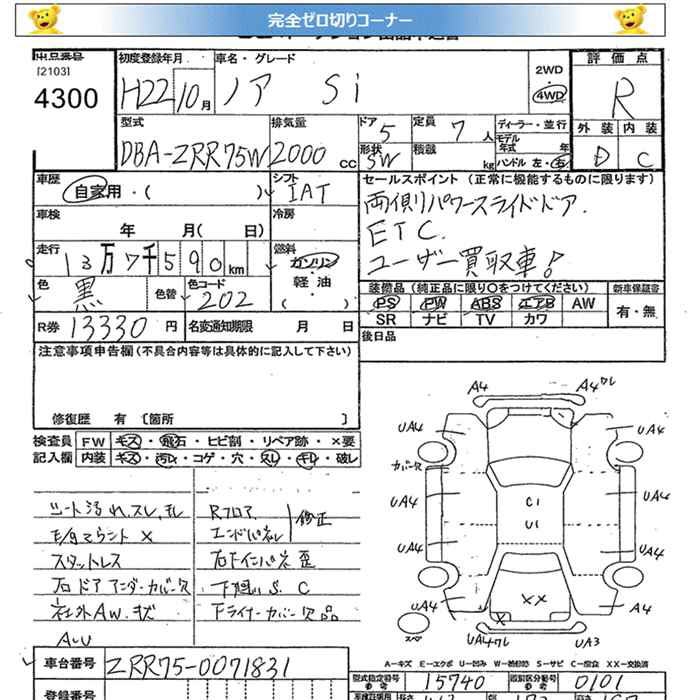 完全ゼロ切りコーナー
出品番号
[2103]
4300
初度登録年月
H22 10月
車名・グレード
ノア Si
2WD
4WD
評価点
R
外装 内装
D C
型式
DBA-ZRR75W
排気量
2000 cc
ドア 5
形状 SW
定員 7 人
積載 kg
ディーラー・並行
モデル年式 年
ハンドル 左・右
車歴
自家用・( )
シフト
IAT
セールスポイント(正常に機能するものに限ります)
両側パワースライドドア.
ETC.
ユーザー買取車!
車検
年 月( 日)
冷房
走行
13万7千590km
燃料
ガソリン・軽油・( )
色
黒
色替
色コード
202
装備品(純正品に限り○をつけてください)
PS PW ABS エアB AW
SR ナビ TV カワ
新車保証書
有・無
R券 13330 円
名変通知期限 月 日
後日品
注意事項申告欄(不具合内容等は具体的に記入して下さい)
修復歴 有 〔箇所 〕
検査員記入欄
FW キズ・飛石・ヒビ割・リペア跡・×要
内装 キズ・汚れ・コゲ・穴・スレ・キレ・破レ
シート汚れ,スレ,モレ
スタットレス
右ドアアンダーカバー欠
社外AW.状
Rフロア
エンドパネル
修正
右下インパネ歪
下廻りS.C
下ライナーカバー欠品
A4
A4ワレ
UA4
UA4
カバー欠
UA4
UA4
C1
U1
UA4
UA4
UA4
××
A4
スペ
UA4ワレ
×
UA3
A-キズ E-エクボ U-凹み W-補修跡 S-サビ C-腐食 XX-交換済
車台番号 ZRR75-0071831
型式指定番号 参考 15740
類別区分番号 参考 0101
登録番号